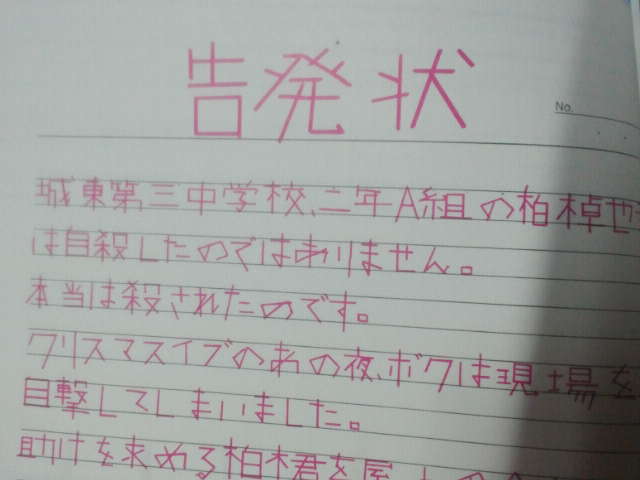 告発状
No.
城東第三中学校、二年A組の柏木卓也
は自殺したのではありません。
本当は殺されたのです。
クリスマスイブのあの夜、ボクは現場を
目撃してしまいました。
助けを求める柏木君を屋上の